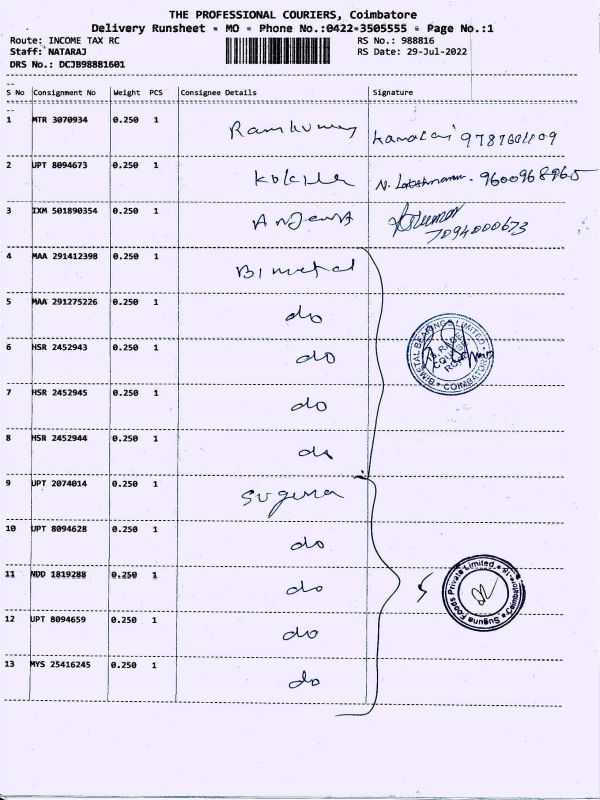 THE PROFESSIONAL COURIERS, Coimbatore
Delivery Runsheet - MO - Phone No.:0422-3505555 - Page No.:1
Route: INCOME TAX RC RS No.: 988816
Staff: NATARAJ RS Date: 29-Jul-2022
DRS No.: DCJB98881601
S No Consignment No Weight PCS Consignee Details Signature
1 MTR 3070934 0.250 1 Ramkumar 9787601109
2 UPT 8094673 0.250 1 Kokila N. Lakshmanan. 9600968965
3 IXM 501890354 0.250 1 Kumar
7094000673
4 MAA 291412398 0.250 1 Bimetal
5 MAA 291275226 0.250 1 do
6 HSR 2452943 0.250 1 do
BIMETAL BEARINGS LIMITED
18 RACE
COURSE
ROAD
COIMBATORE
7 HSR 2452945 0.250 1 do
8 HSR 2452944 0.250 1 do
9 UPT 2074014 0.250 1 Suguna
10 UPT 8094628 0.250 1 do
11 NDD 1819288 0.250 1 do
5
Suguna Foods Private Limited Coimbatore-18
12 UPT 8094659 0.250 1 do
13 MYS 25416245 0.250 1 do